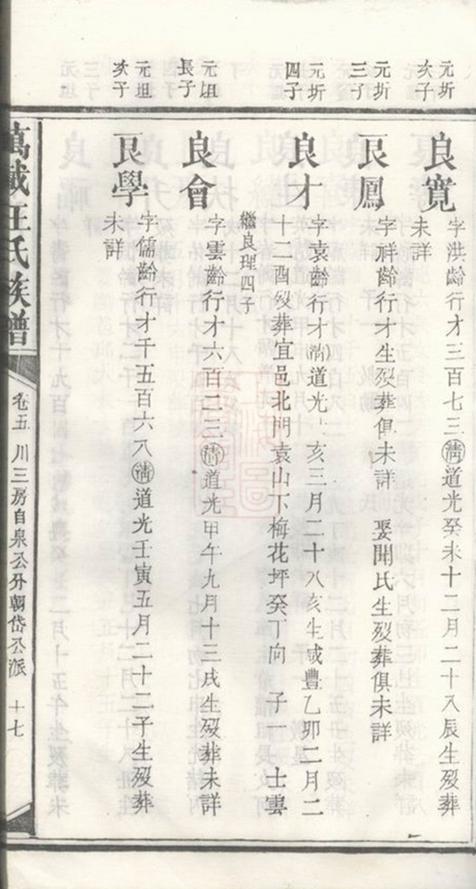 元圻
次子
良寬
字洪齡行才三百七三清道光癸未十二月二十八辰生歿葬
未詳
元圻
三子
良鳳
字祥齡行才生歿葬俱未詳 娶聞氏生歿葬俱未詳
元圻
四子
良才
字袁齡行才清道光 亥三月二十八亥生咸豐乙卯二月二
十二酉歿葬宜邑北門袁山下梅花坪癸丁向 子一 士雲
繼良理四子
元坦
長子
良會
字雲齡行才六百二三清道光甲午九月十三戌生歿葬未詳
元坦
次子
良學
字儒齡行才千五百六八清道光壬寅五月二十二子生歿葬
未詳
萬載王氏族譜
卷五 川三房自泉公分朝岱公派 十七